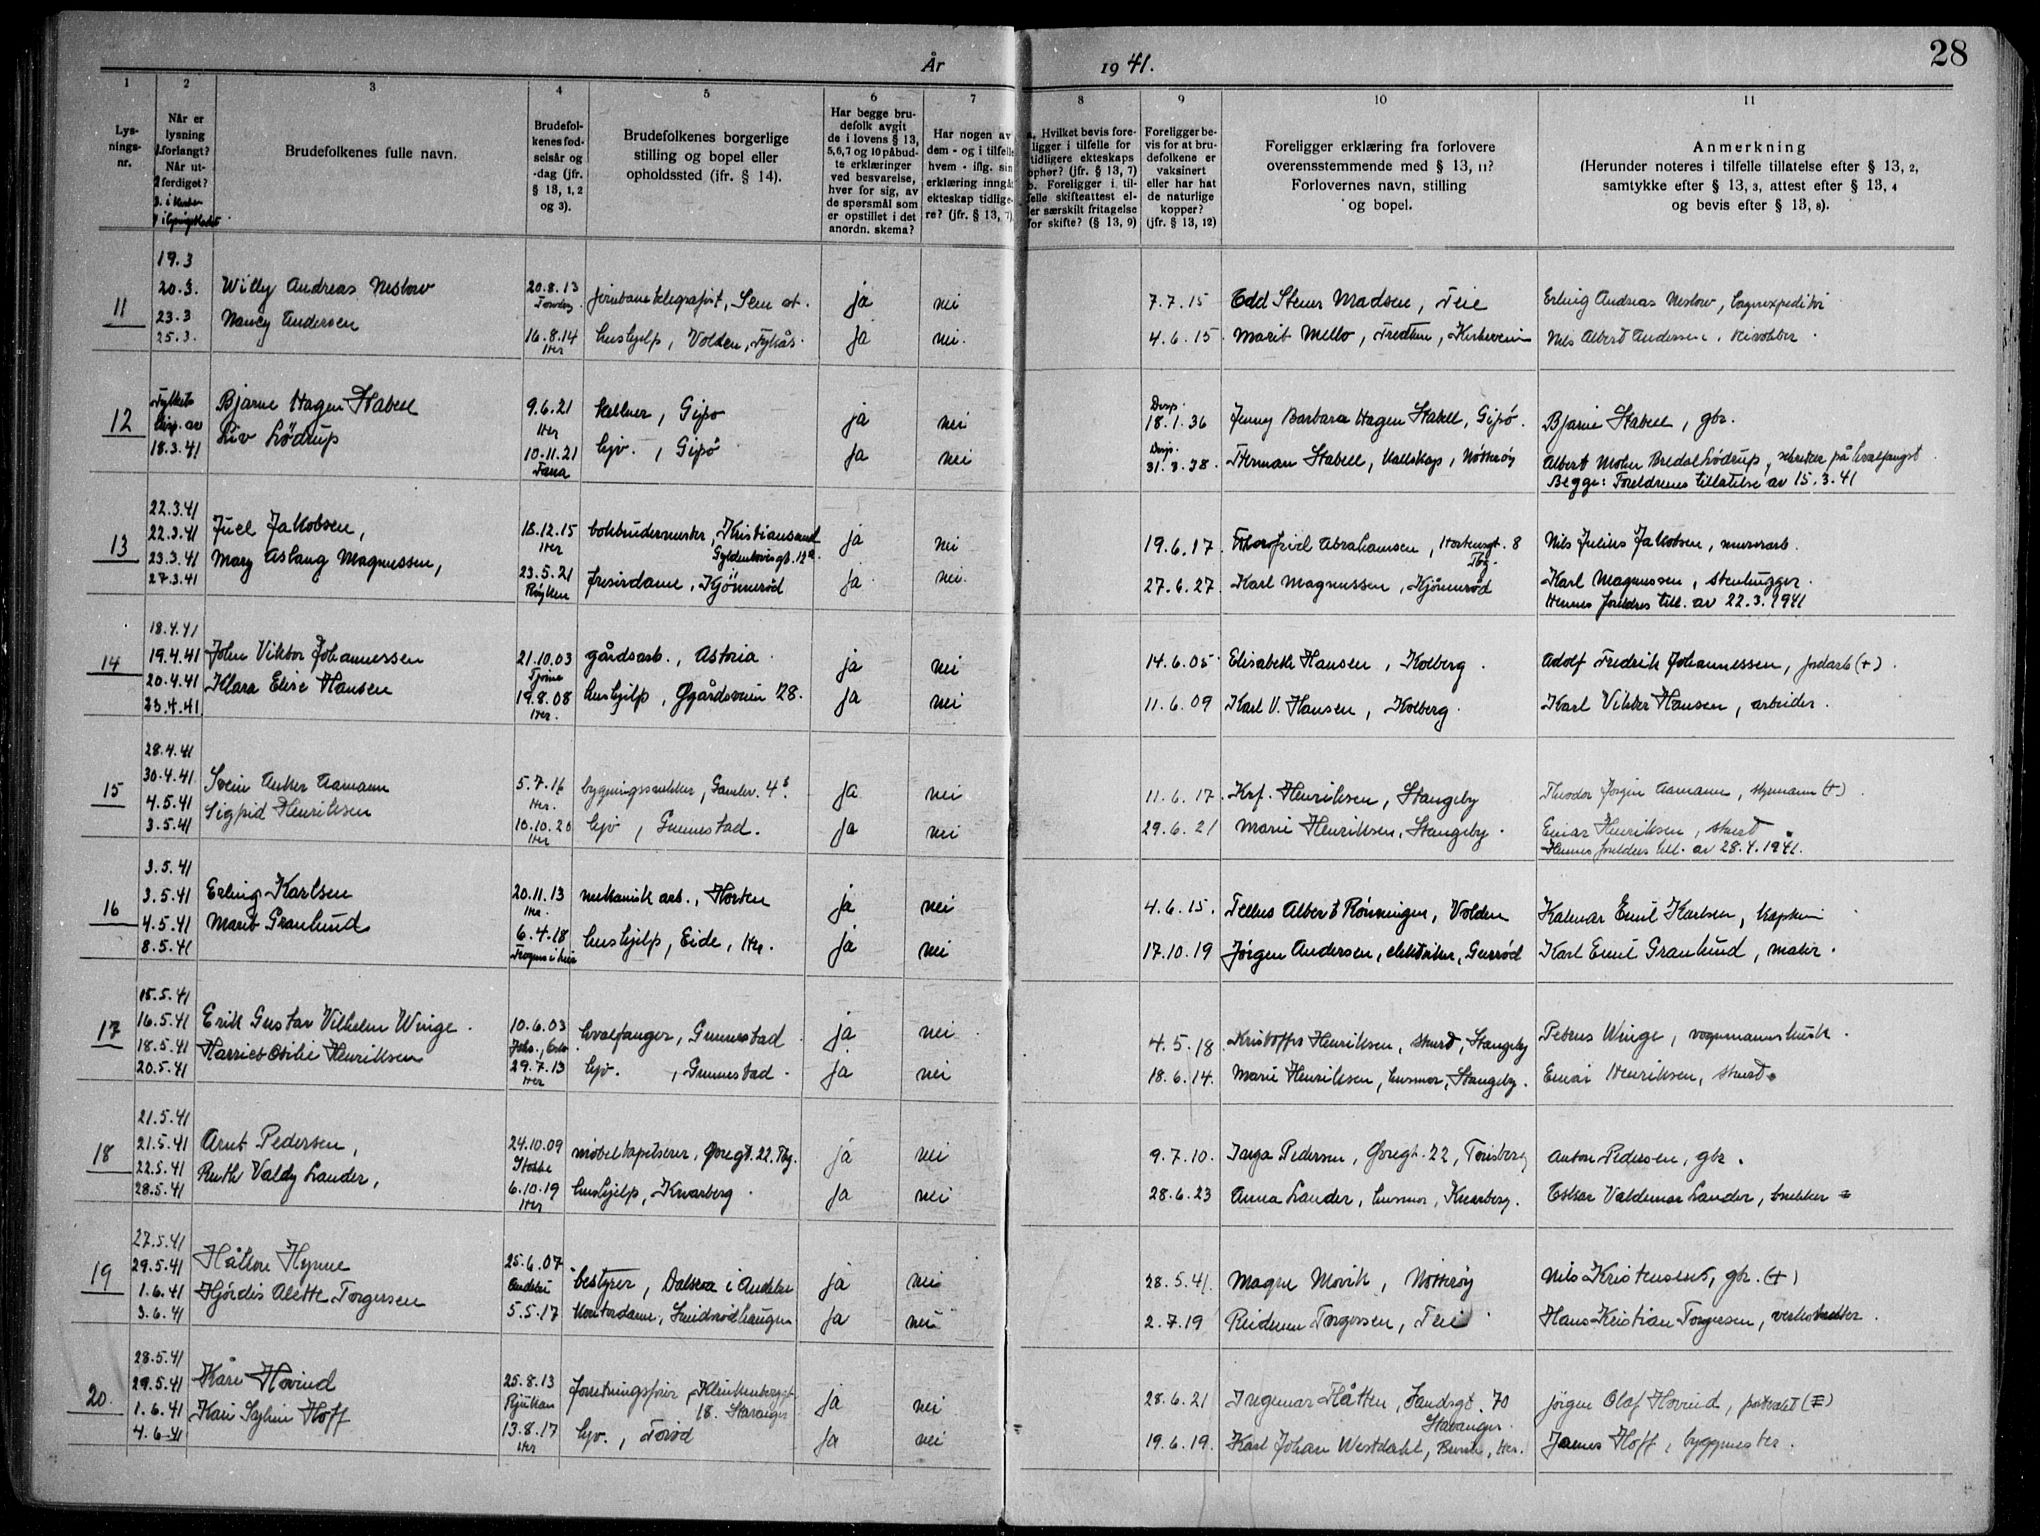 År 1941.
28
1 2 3 4 5 6 7 8 9 10 11
Lysningsnr.
Når er lysning forlangt? Når utferdiget?
Brudefolkenes fulle navn.
Brudefolkenes fødselsår og -dag (jfr. § 13, 1, 2 og 3).
Brudefolkenes borgerlige stilling og bopel eller opholdssted (ifr. § 14).
Har begge brudefolk avgit de i lovens § 13, 5,6,7 og 10 påbudte erklæringer ved besvarelse, hver for sig, av de spørsmål som er opstillet i det anordn. skema?
Har nogen av dem - og i tilfelle hvem - iflg. sin erklæring inngått ekteskap tidligere? (jfr. § 13, 7)
a. Hvilket bevis foreligger i tilfelle for tidligere ekteskaps ophør? (jfr. § 13, 7) b. Foreligger i tilfelle skifteattest eller særskilt fritagelse for skifte? (§ 13, 9)
Foreligger bevis for at brudefolkene er vaksinert eller har hat de naturlige kopper? (jfr. § 13, 12)
Foreligger erklæring fra forlovere overensstemmende med § 13, 11? Forlovernes navn, stilling og bopel.
Anmerkning (Herunder noteres i tilfelle tillatelse efter § 13, 2, samtykke efter § 13, 3, attest efter § 13, 4 og bevis efter § 13, 8).
11
19.3
20.3.
23.3
25.3.
Willy Andreas 20.8.13 jernbanetelegrafist, Sem st. ja nei 7.7.15 Odd Stener Madsen, Teie Erling Andreas
Nancy Andersen 16.8.14 Her hushjelp, Volden, ja nei. 4.6.15 Marit Mello, Nils Albert Andersen
12
Fylkets disp. av 18.3.41
Bjarne Hagen Stabell 9.6.21 Her kellner, Gipø ja nei Disp. 18.1.36 Jenny Barbara Hagen Stabell, Gipø. Bjarne Stabell, gbr.
Liv Lödrup 10.11.21 Fana hjv., Gipö ja nei Disp. 31.3.38. Herman Stabell, Nötterøy Albert Bredal Lödrup, på hvalfangst
Begge: Foreldrenes tillatelse av 15.3.41
13
22.3.41
22.3.41
23.3.41
27.3.41
Juel Jakobsen, 18.12.15 Her Kristiansand Gyldenlövesgt. 12a ja nei 19.6.17. Abrahamsen, 8 Tbg. Nils Julius Jakobsen, murerarb.
Mary Aslaug Magnussen, 23.5.21 Röyken frisørdame, Kjönnerød ja. nei. 27.6.27. Karl Magnussen, Kjönnerød Karl Magnussen, stenhugger
Hennes foreldres till. av 22.3.1941
14
18.4.41
19.4.41
20.4.41
23.4.41
John Viktor Johannessen 21.10.03 Tjöme gårdsarb., Astoria ja nei 14.6.05. Elisabeth Hansen, Kolberg. Adolf Fredrik Johannessen, jordarb (+)
Klara Elise Hansen 19.8.08 Her. hushjelp, Øgårdsveien 28. ja nei 11.6.09 Karl V. Hansen, Kolberg. Karl Viktor Hansen, arbeider.
15
28.4.41
30.4.41
4.5.41
3.5.41
Svein Anker Aamann 5.7.16 Her. bygningssnekker, Gamlev. 4b. ja nei 11.6.17. Krf. Henriksen, Stangeby Theodor Jörgen Aamann, styrmann (+)
Sigfrid Henriksen 10.10.20 Her hjv, Gunnestad. ja nei 29.6.21 Marie Henriksen, Stangeby. Einar Henriksen, stuert
Hennes foreldres till. av 28.4.1941.
16
3.5.41
3.5.41
4.5.41
8.5.41
Erling Karlsen 20.11.13 Her. mekanisk arb., Horten ja nei 4.6.15. Tellus Albert Rönningen, Volden Kalmar Emil Karlsen, kaptein
Marit Granlund 6.4.18 hushjelp, Eide, Her. ja nei 17.10.19 Jørgen Andersen, elektriker, Karl Emil Granlund, maler.
17
15.5.41
16.5.41
18.5.41
20.5.41
Erik Gustav Vilhelm Winge. 10.6.03 hvalfanger, Gunnestad ja nei 4.5.18. Kristoffer Henriksen, stuert, Stangeby Petrus Winge, vognmannskusk.
Harriet Otilie Henriksen 29.7.13 Her hjv., Gunnestad. ja nei 18.6.14. Marie Henriksen, husmor, Stangeby. Einar Henriksen, stuert.
18
21.5.41
21.5.41
22.5.41
28.5.41
Arnt Pedersen, 24.10.09 Stokke møbeltapetserer, Øvregt. 22. Tbg. ja nei 9.7.10. Inga Pedersen, Øvregt. 22, Tönsberg Anton Pedersen, gbr.
Ruth Valdy Lander, 6.10.19 Her hushjelp, Knarberg. ja nei 28.6.23 Anna Lander, husmor, Knarberg. Oskar Valdemar Lander, snekker
19
27.5.41
29.5.41
1.6.41
3.6.41
Håkon Hynne 25.6.07 Andebu bestyrer, i Andebu ja nei 28.5.41. Magne Movik, Nötterøy Nils Kristensen, gbr. (+)
Hjørdis Alette Torgersen 5.5.17 kontordame, Smidsrødhaugen ja nei 2.7.19 Torgersen, Teie Hans Kristian Torgersen,
20.
28.5.41
29.5.41
1.6.41
4.6.41
Kåre Hovind 25.8.13 Rjukan forretningsfører, Klinkenberggt. 18. Stavanger ja nei 28.6.21 Ingemar Håtten, Sandsgt. 70 Stavanger Jørgen Olaf Hovind,
Kari Sylvia Hoff 13.8.17 Her hjv., Torød ja nei 19.6.19. Karl Johan Westdahl, Her. James Hoff, byggmester.